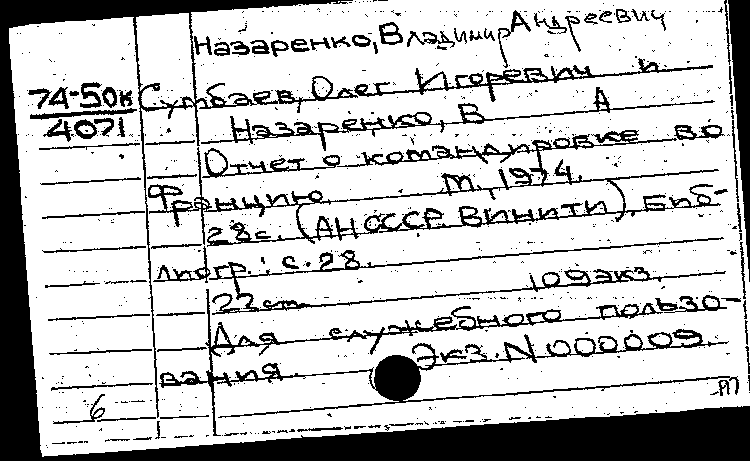 Назаренко, Владимир Андреевич
74-50к
4071
Сумбаев, Олег Игоревич и
Назаренко, В А
Отчет о командировке во
Францию. М., 1974.
28с. (АН СССР. ВИНИТИ). Биб-
лиогр.: с. 28.
22см. 109экз.
Для служебного пользо-
вания. Экз. N 000009.
6